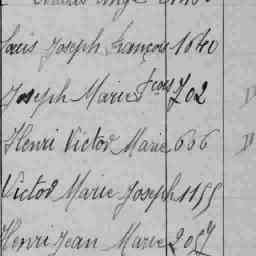 Louis Joseph François 1640
Joseph Marie Fçois 702
Henri Victor Marie 606
Victor Marie Joseph 1155
Henri Jean Marie 2057